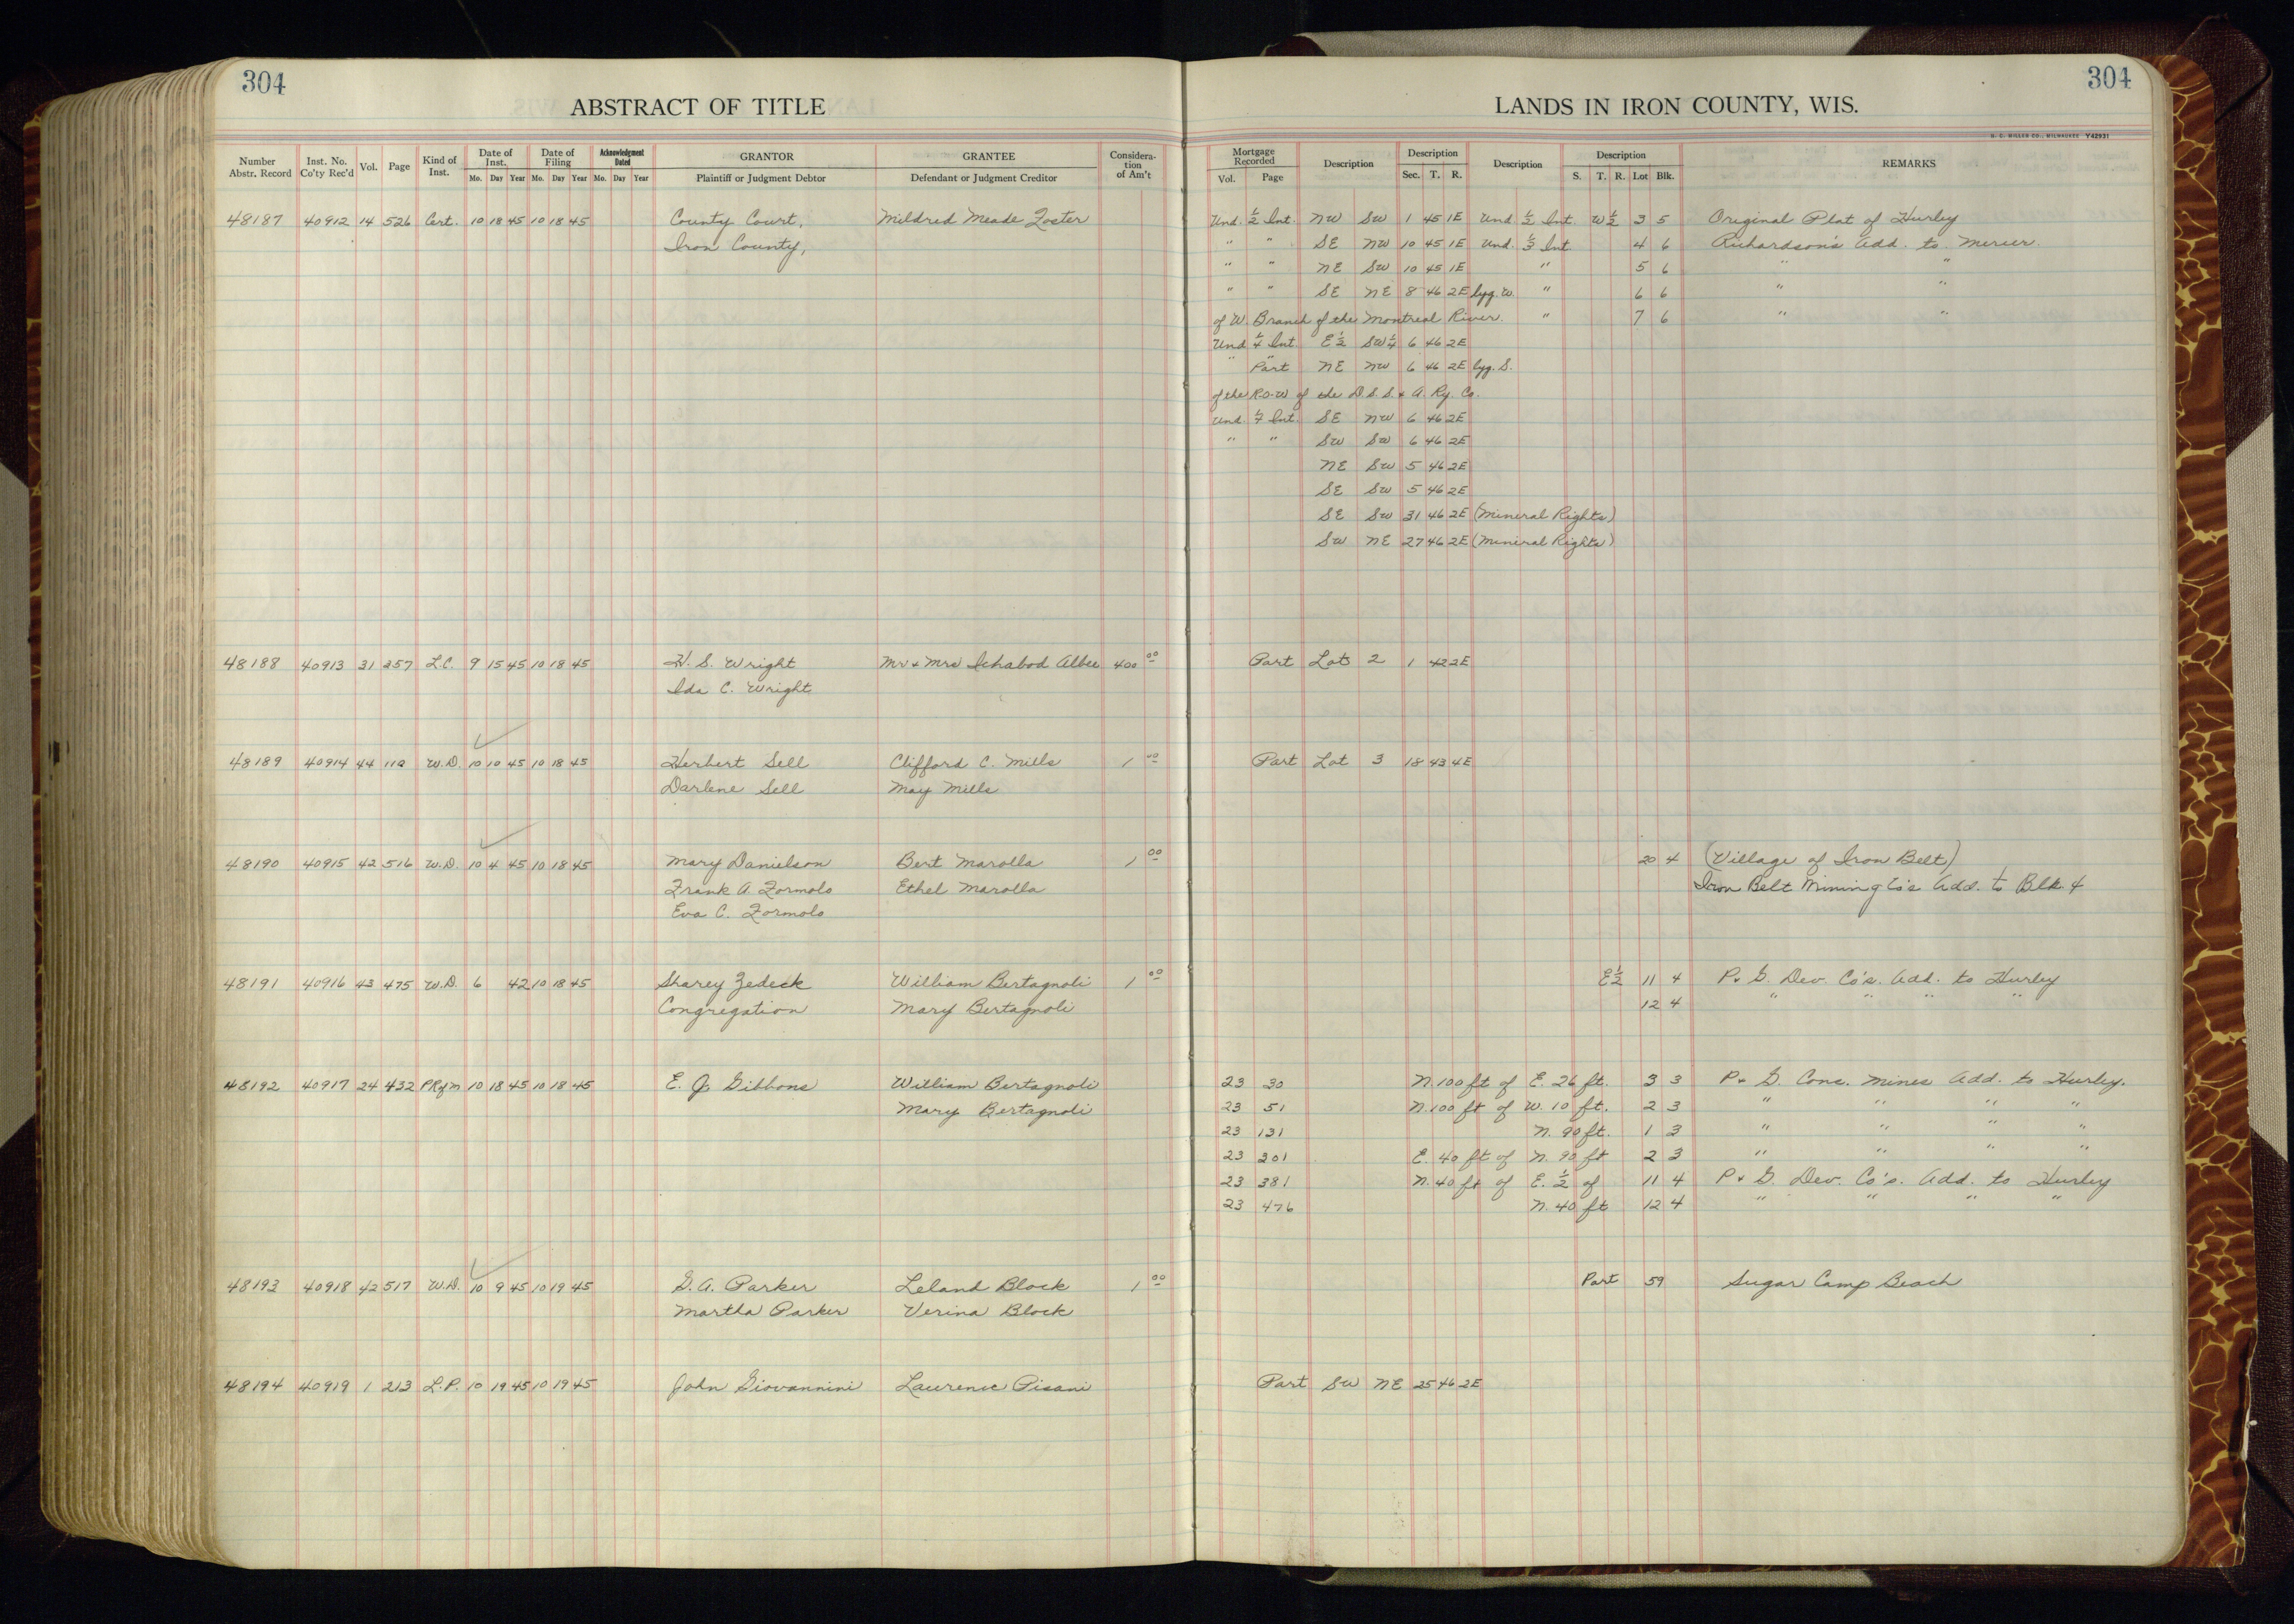 304
304
ABSTRACT OF TITLE
LANDS IN IRON COUNTY, WIS.
H. C. MILLER CO., MILWAUKEE Y42931
Number Abstr. Record Inst. No. Co'ty Rec'd Vol. Page Kind of Inst. Date of Inst. Mo. Day Year Date of Filing Mo. Day Year Acknowledgment Dated Mo. Day Year GRANTOR Plaintiff or Judgment Debtor GRANTEE Defendant or Judgment Creditor Consideration of Am't
Mortgage Recorded Vol. Page Description Description Sec. T. R. Description Description S. T. R. Lot Blk. REMARKS
48187 40912 14 526 Cert. 10 18 45 10 18 45 County Court, Mildred Meade Foster Und. 1/2 Int. NW SW 1 45 1E Und 1/2 Int. W 1/2 3 5 Original Plat of Hurley
Iron County, " " SE NW 10 45 1E Und. 1/3 Int 4 6 Richardson's Add. to Mercer.
" " NE SW 10 45 1E " 5 6 " "
" " SE NE 8 46 2E lyg. W. " 6 6 " "
of W. Branch of the Montreal River. " 7 6 " "
Und 1/4 Int. E 1/2 SW 1/4 6 46 2E
" " Part NE NW 6 46 2E lyg. S.
of the R.O.W of the D.S.S. & A. Ry. Co.
Und. 1/7 Int. SE NW 6 46 2E
" " SW SW 6 46 2E
NE SW 5 46 2E
SE SW 5 46 2E
SE SW 31 46 2E (Mineral Rights)
SW NE 27 46 2E (Mineral Rights)
48188 40913 31 257 L.C. 9 15 45 10 18 45 H. S. Wright Mr & Mrs Ichabod Albee 400 00 Part Lot 2 1 42 2E
Ida C. Wright
48189 40914 44 110 W.D. 10 10 45 10 18 45 Herbert Sell Clifford C. Mills 1 00 Part Lot 3 18 43 4E
Darlene Sell May Mills
48190 40915 42 516 W.D. 10 4 45 10 18 45 Mary Danielson Bert Marolla 1 00 20 4 (Village of Iron Belt)
Frank A. Formolo Ethel Marolla Iron Belt Mining Co's Add. to Blk. 4
Eva C. Formolo
48191 40916 43 475 W.D. 6 42 10 18 45 Sharey Zedeck William Bertagnoli 1 00 E 1/2 11 4 P. & G. Dev. Co's. Add. to Hurley
Congregation Mary Bertagnoli 12 4 " " " "
48192 40917 24 432 PRofM 10 18 45 10 18 45 E. J. Gibbons William Bertagnoli 23 30 N. 100 ft of E. 26 ft. 3 3 P. & G. Cons. Mines Add. to Hurley.
Mary Bertagnoli 23 51 N. 100 ft of W. 10 ft. 2 3 " " " "
23 131 N. 90 ft. 1 3 " " " "
23 201 E. 40 ft of N. 90 ft 2 3 " " " "
23 381 N. 40 ft of E. 1/2 of 11 4 P. & G. Dev. Co's. Add. to Hurley
23 476 N. 40 ft 12 4 " " " "
48193 40918 42 517 W.D. 10 9 45 10 19 45 G. A. Parker Leland Block 1 00 Part 59 Sugar Camp Beach
Martha Parker Verina Block
48194 40919 1 213 L.P. 10 19 45 10 19 45 John Giovannini Laurence Pisani Part SW NE 25 46 2E